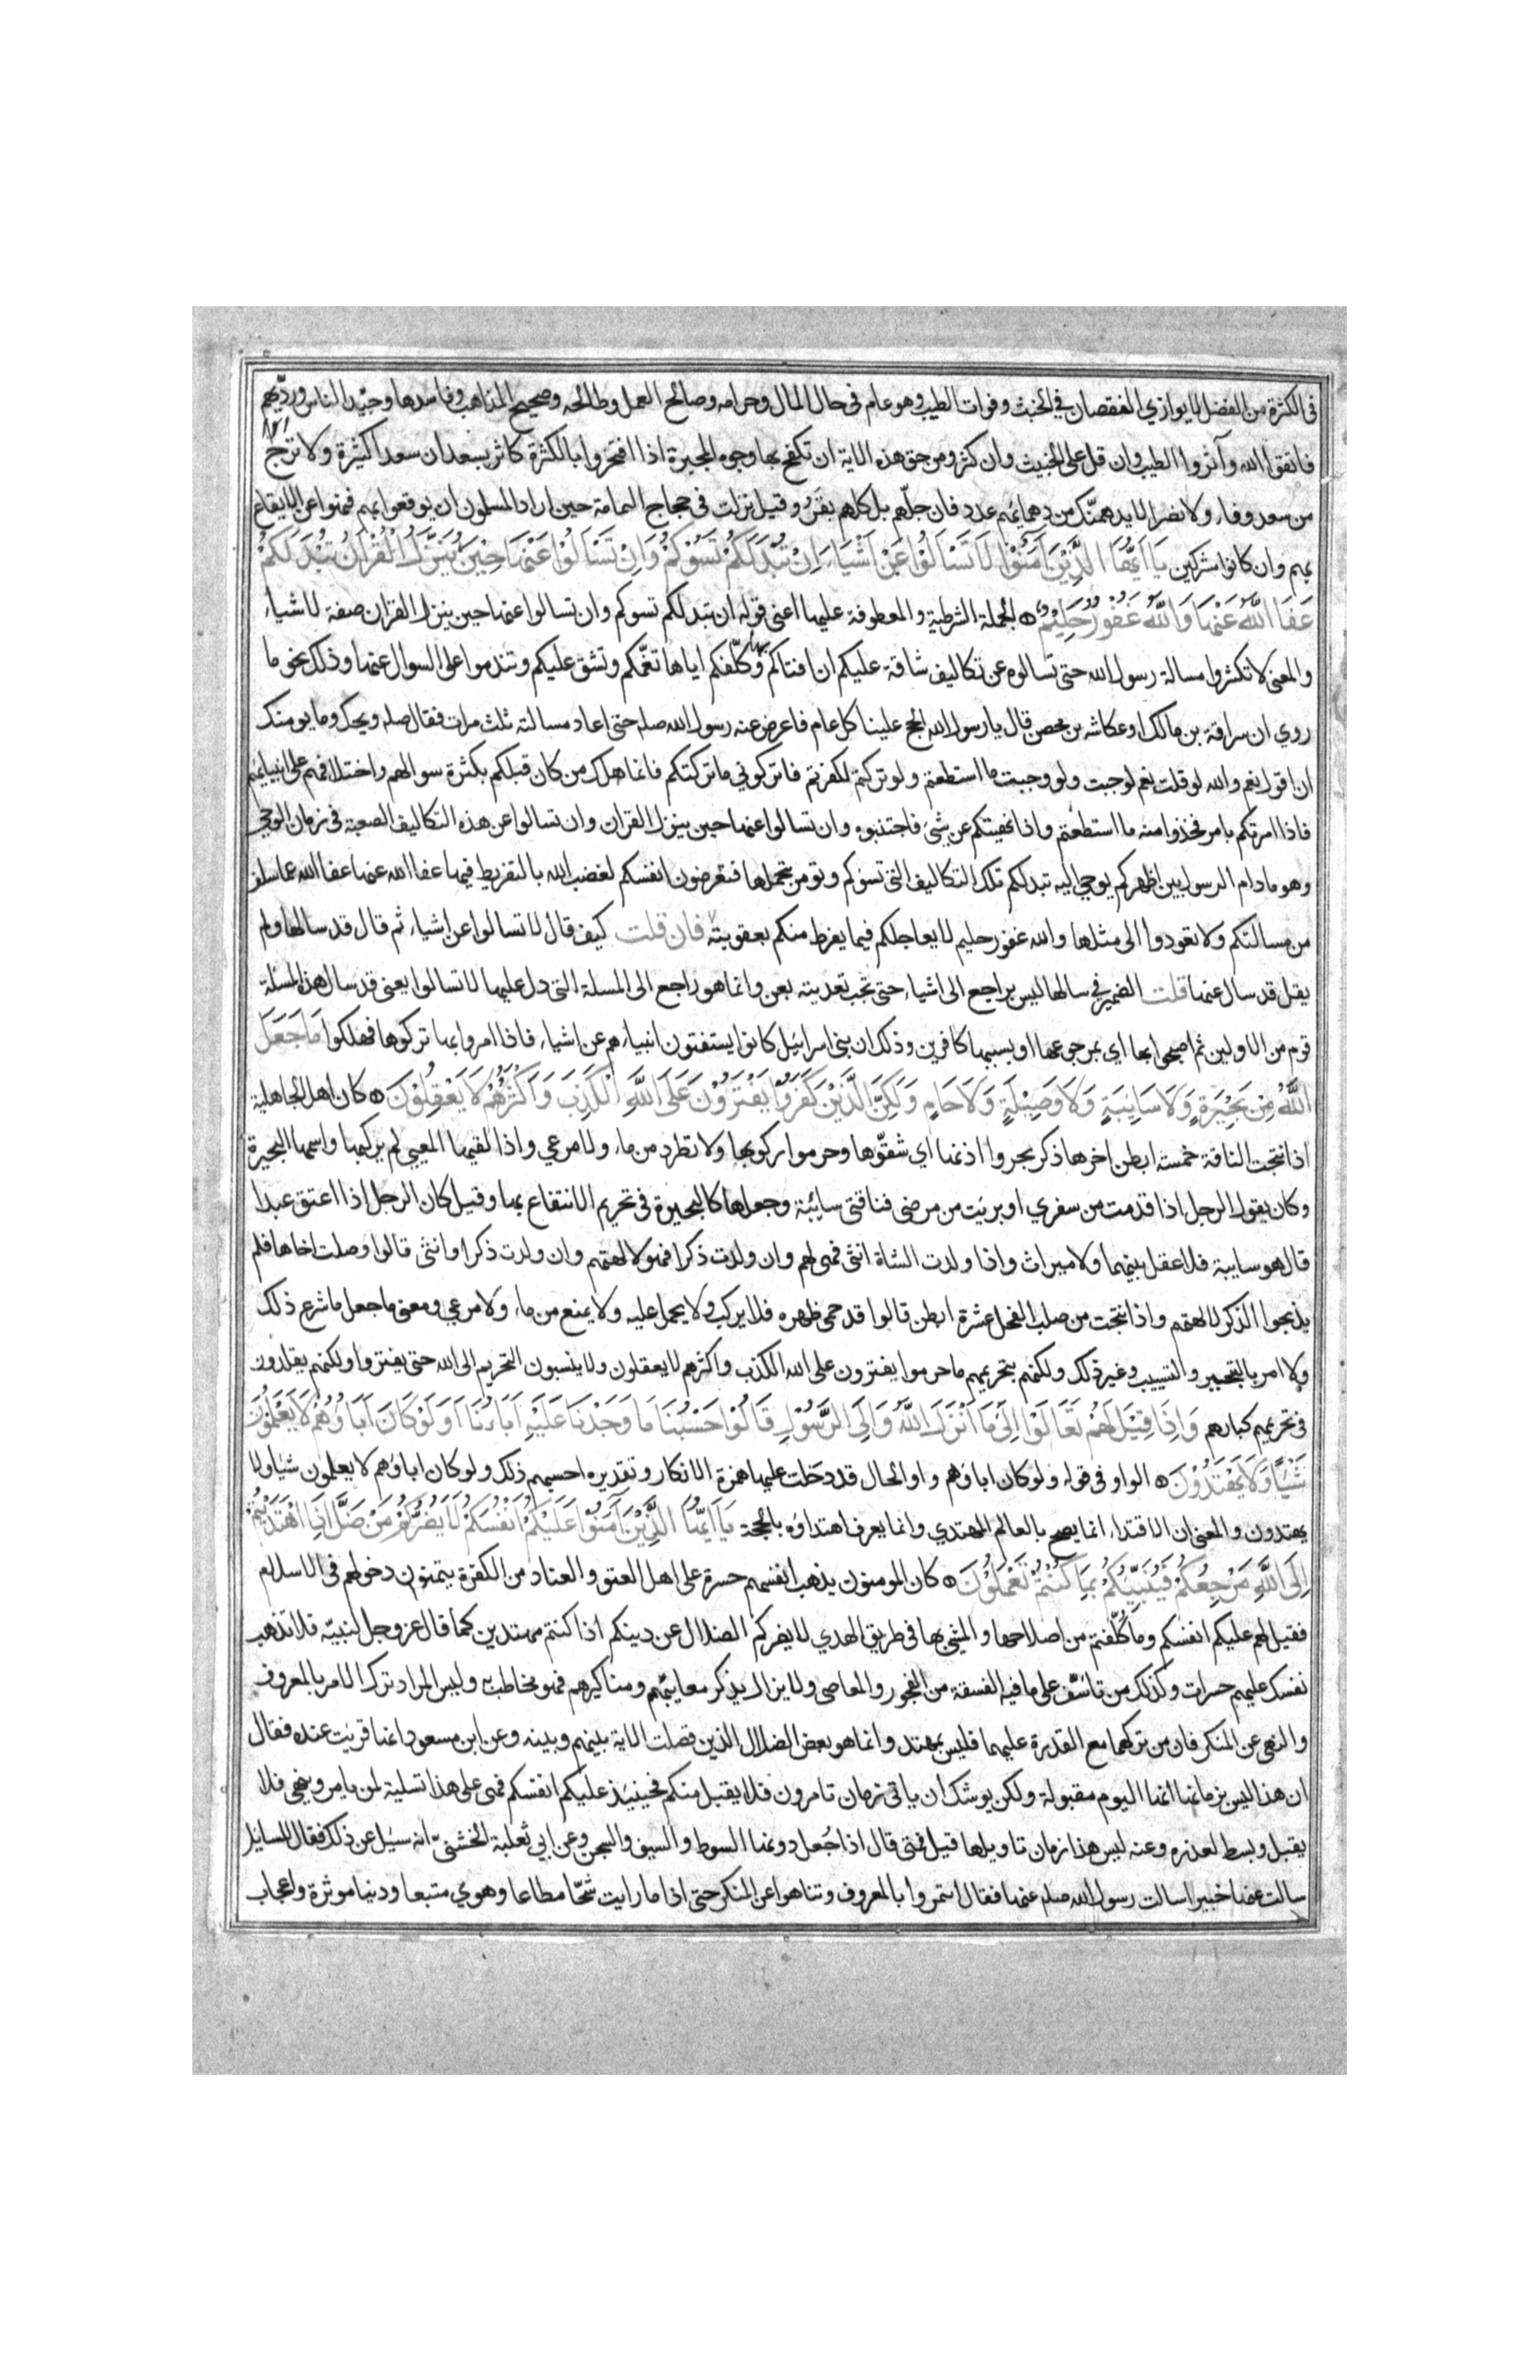 فى الكثرة من الفضل لا يوازي النقصان في الخبث وفوات الطيب وهو عام فى حال المال وحرامه وصالح العمل وطالحه وصحيح المذاهب وفاسدها وجيد الناس ورديهم
فاتقوا الله وآثروا الطيب وان قل على الخبيث وان كثر ومن حق هذه الاية ان تكفح بها وجوه المجبرة اذا افتخروا بالكثرة كاثر بسعد ان سعدا كثيرة ولا ترج
من سعد وفاء ولا نصرا لا يدهمنّك من دهمائهم عدد فان جلّهم بل كلهم بقر وقيل نزلت فى حجاج اليمامة حين اراد المسلمون ان يوقعوا بهم فنهوا عن الايقاع
بهم وان كانوا مشركين يَا اَيُّهَا الَّذِيْنَ آمَنُوْا لَا تَسْاَلُوْا عَنْ اَشْيَاءَ اِنْ تُبْدَ لَكُمْ تَسُؤْكُمْ وَاِنْ تَسْاَلُوْا عَنْهَا حِيْنَ يُنَزَّلُ الْقُرْآنُ تُبْدَ لَكُمْ
عَفَا اللَّهُ عَنْهَا وَاللَّهُ غَفُوْرٌ حَلِيْمٌ ه الجملة الشرطية والمعطوفة عليها اعنى قوله ان تبد لكم تسوكم وان تسالوا عنها حين ينزل القران صفة لاشياء
والمعنى لا تكثروا مسالة رسول الله حتى تسالوه عن تكاليف شاقة عليكم ان افتاكم بها وكلّفكم اياها تغمّكم وتشق عليكم وتندموا على السوال عنها وذلك نحو ما
روي ان سراقة بن مالك او عكاشه بن محصن قال يا رسول الله الحج علينا كل عام فاعرض عنه رسول الله صلم حتى اعاد مسالته ثلث مرات فقال صلم ويحك وما يومنك
ان اقول نعم والله لو قلت نعم لوجبت ولو وجبت ما استطعتم ولو تركتم لكفرتم فاتركوني ما تركتكم فانما هلك من كان قبلكم بكثرة سوالهم واختلافهم على انبيائهم
فاذا امرتكم بامر فخذوا منه ما استطعتم واذا نهيتكم عن شئ فاجتنبوه وان تسالوا عنها حين ينزل القران وان تسالوا عن هذه التكاليف الصعبة فى زمان الوحي
وهو ما دام الرسول بين اظهركم يوحي اليه تبد لكم تلك التكاليف التى تسؤكم وتومرن بتحملها فتعرضون انفسكم لغضب الله بالتفريط فيها عفا الله عنها عفا الله عما سلف
من مسالتكم ولا تعودوا الى مثلها والله غفور حليم لا يعاجلكم فيما يفرط منكم بعقوبته فان قلت كيف قال لا تسالوا عن اشياء ثم قال قد سالها ولم
يقل قد سال عنها قلت الضمير في سالها ليس براجع الى اشياء حتى تجب تعديته بعن وانما هو راجع الى المسلة التى دل عليها لا تسالوا يعنى قد سال هذه المسلة
قوم من الاولين ثم اصبحوا بها اي بمرجوعها او بسببها كافرين وذلك ان بنى اسرائيل كانوا يستفتون انبياءهم عن اشياء فاذا امروا بها تركوها فهلكوا مَا جَعَلَ
اللَّهُ مِنْ بَحِيْرَةٍ وَلَا سَائِبَةٍ وَلَا وَصِيْلَةٍ وَلَا حَامٍ وَلَكِنَّ الَّذِيْنَ كَفَرُوْا يَفْتَرُوْنَ عَلَى اللَّهِ الْكَذِبَ وَاَكْثَرُهُمْ لَا يَعْقِلُوْنَ ه كان اهل الجاهلية
اذا نتجت الناقة خمسة ابطن اخرها ذكر بحروا اذنها اي شقّوها وحرموا ركوبها ولا تطرد من ماء ولا مرعي واذا لقيها المعيى لم يركبها واسمها البحيرة
وكان يقول الرجل اذا قدمت من سفري او بريت من مرضى فناقتى سائبة وجعلها كالبحيرة فى تحريم الانتفاع بها وقيل كان الرجل اذا اعتق عبدا
قال هو سايبة فلا عقل بينهما ولا ميراث واذا ولدت الشاة انثى فهى لهم وان ولدت ذكرا فهو لالهتهم وان ولدت ذكرا وانثى قالوا وصلت اخاها فلم
يذبحوا الذكر لالهتهم واذا نتجت من صلب الفحل عشرة ابطن قالوا قد حمى ظهره فلا يركب ولا يحمل عليه ولا يمنع من ماء ولا مرعي ومعنى ما جعل ما شرع ذلك
ولا امر بالتبحير والتسييب وغير ذلك ولكنهم بتحريمهم ما حرموا يفترون على الله الكذب واكثرهم لا يعقلون ولا ينسبون التحريم الى الله حتى يفتروا ولكنهم يقلدون
فى تحريمهم كبارهم وَاِذَا قِيْلَ لَهُمْ تَعَالَوْا اِلَى مَا اَنْزَلَ اللَّهُ وَاِلَى الرَّسُوْلِ قَالُوْا حَسْبُنَا مَا وَجَدْنَا عَلَيْهِ آبَاءَنَا اَوَلَوْ كَانَ آبَاؤُهُمْ لَا يَعْلَمُوْنَ
شَيْئًا وَلَا يَهْتَدُوْنَ ه الواو فى قوله ولو كان اباؤهم واو الحال قد دخلت عليها همزة الانكار وتقديره احسبهم ذلك ولو كان اباؤهم لا يعلمون شيا ولا
يهتدون والمعنى ان الاقتداء انما يصح بالعالم المهتدي وانما يعرف اهتداؤه بالحجة يَا اَيُّهَا الَّذِيْنَ آمَنُوْا عَلَيْكُمْ اَنْفُسَكُمْ لَا يَضُرُّكُمْ مَنْ ضَلَّ اِذَا اهْتَدَيْتُمْ
اِلَى اللَّهِ مَرْجِعُكُمْ فَيُنَبِّئُكُمْ بِمَا كُنْتُمْ تَعْمَلُوْنَ ه كان المومنون يذهب انفسهم حسرة على اهل العتو والعناد من الكفرة يتمنون دخولهم فى الاسلام
فقيل لهم عليكم انفسكم وما كلّفتم من اصلاحها والمشى بها فى طريق الهدي لا يضركم الضلال عن دينكم اذا كنتم مهتدين كما قال عز وجل لنبيّه فلا تذهب
نفسك عليهم حسرات وكذلك من تاسّف على ما فيه الفسقة من الفجور والمعاصى ولا يزال يذكر معايبهم ومناكيرهم فهو مخاطب به وليس المراد ترك الامر بالمعروف
والنهى عن المنكر فان من تركهما مع القدرة عليهما فليس بمهتد وانما هو بعض الضلال الذين فصلت الاية بينهم وبينه وعن ابن مسعود انها قريت عنده فقال
ان هذا ليس بزمانها انها اليوم مقبولة ولكن يوشك ان ياتى زمان تامرون فلا يقبل منكم فحينئذ عليكم انفسكم فهى على هذا تسلية لمن يامر وينهى فلا
يقبل وبسط لعذره وعنه ليس هذا زمان تاويلها قيل فمتى قال اذا جُعل دونها السوط والسيف والسجن وعن ابي ثعلبة الخشنىّ انه سئل عن ذلك فقال للسائل
سالت عنها خبيرا سالت رسول الله صلم عنها فقال ائتمروا بالمعروف وتناهوا عن المنكر حتى اذا ما رايت شحّا مطاعا وهوي متبعا ودنيا موثرة واعجاب